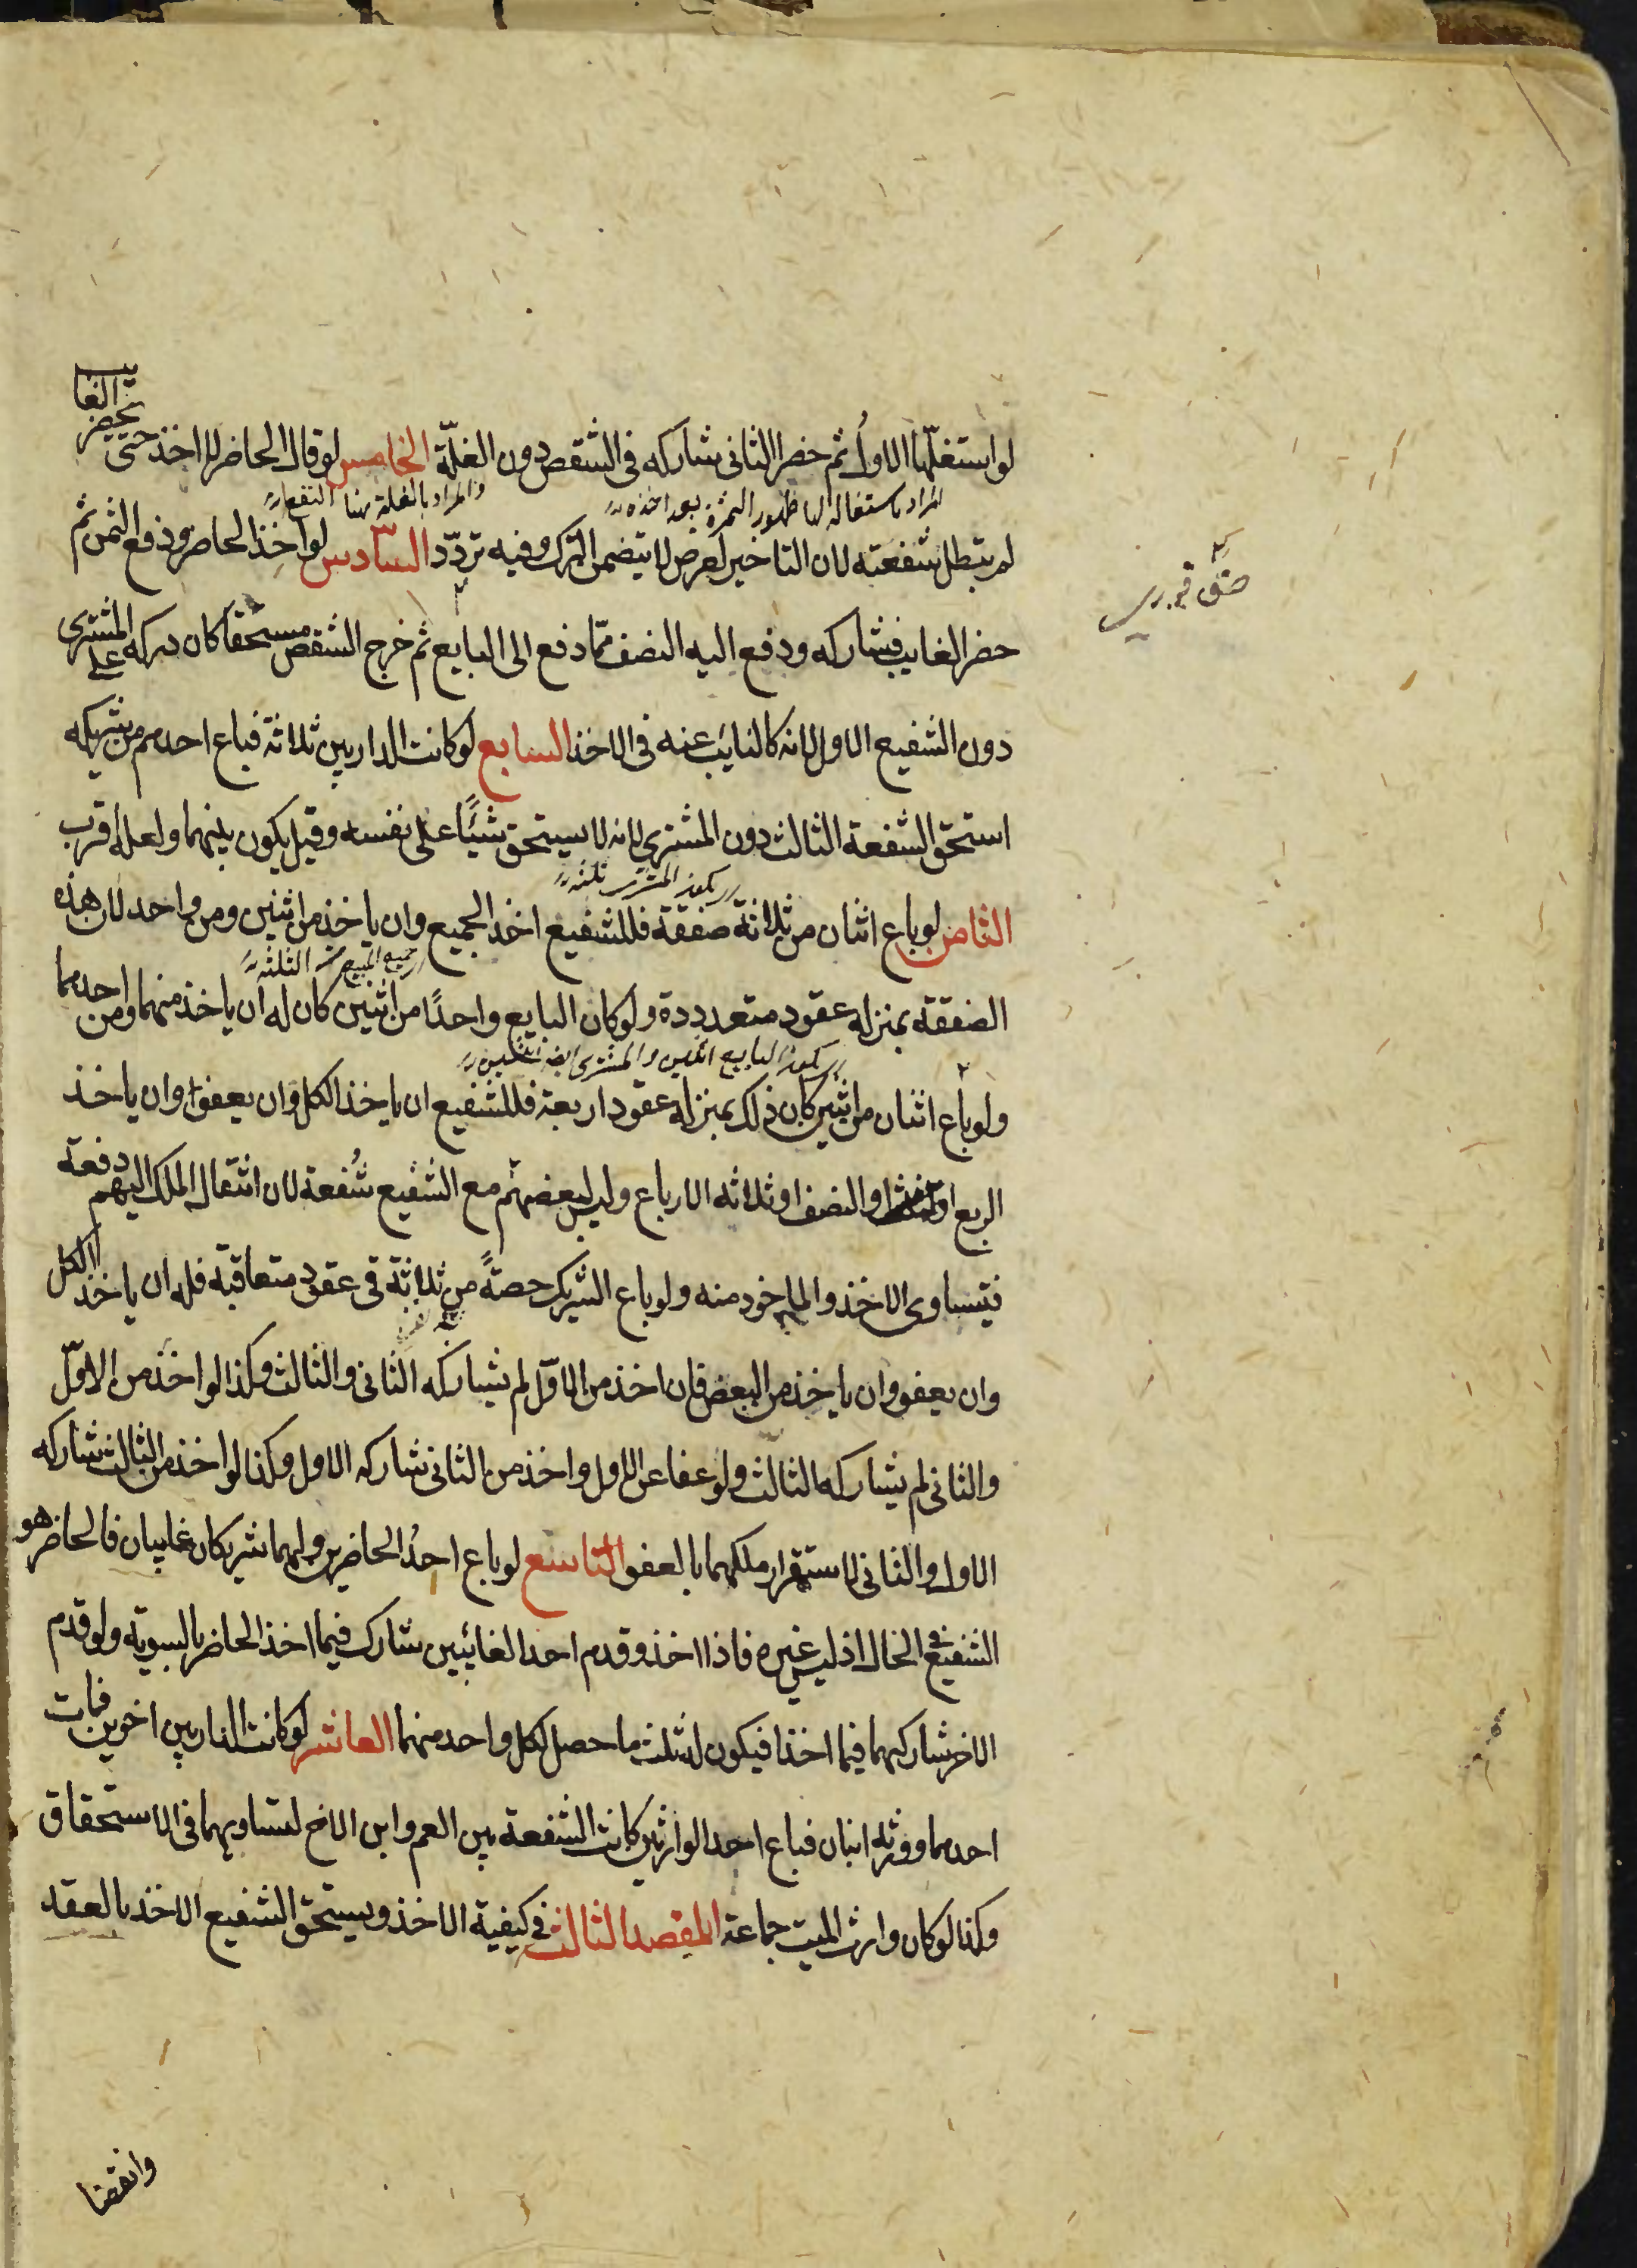 لو استغلّها الاول ثم حضر الثانى شاركه فى الشقص دون الغلّة الخامس لو قال الحاضر لا اخذ حتى يحضر الغايب
المراد باستغلاله لها ظهور الثمرة بعد اخذه والمراد بالغلة هنا
لم يبطل شفعته لان التاخير لغرض لا يتضمن الترك وفيه تردّد السّادس لو اخذ الحاضر ودفع الثمن ثم
حضر الغايب فشاركه ودفع اليه النصف ممّا دفع الى البايع ثم خرج الشقص مستحقا كان دركه على المشترى
دون الشفيع الاول لانه كالنايب عنه فى الاخذ السابع لو كانت الدار بين ثلاثة فباع احدهم من شريكه
استحق الشفعة الثالث دون المشترى لانه لا يستحق شيئًا على نفسه وقيل يكون بينهما ولعله اقرب
يكون المشترى ثلثه
الثامن لو باع اثنان من ثلاثة صفقة فللشفيع اخذ الجميع وان ياخذ من اثنين ومن واحد لان هذه
جميع المبيع من الثلثه
الصفقة بمنزلة عقود متعدددة ولو كان البايع واحدًا من اثنين كان له ان ياخذ منهما ومن احدهما
يكون البايع اثنين والمشترى ايضا اثنين
ولو باع اثنان من اثنين كان ذلك بمنزلة عقود اربعة فللشفيع ان ياخذ الكل وان يعفوا وان ياخذ
الربع او النصف او ثلاثه الارباع وليس لبعضهم مع الشفيع شُفعة لان انتقال الملك اليهم دفعة
فيتساوى الاخذ والماخوذ منه ولو باع الشريك حصتهً من ثلاثة فى عقود متعاقبة فله ان ياخذ الكل
وان يعفو وان ياخذ من البعض فان اخذ من الاوّل لم يشاركه الثانى والثالث وكذا لو اخذ من الاوّل
والثانى لم يشاركه الثالث ولو عفا عن الاول واخذ من الثانى شاركه الاول وكذا لو اخذ من الثالث شاركه
الاول والثانى لاستقرار ملكهما بالعفو التاسع لو باع احدُ الحاضرين ولهما شريكان غايبان فالحاضر هو
الشفيع فى الحال اذ ليس غيره فاذا اخذ وقدم احد الغائبين شارك فيما اخذ الحاضر بالسوية ولو قدم
الاخر شاركهما فيما اخذا فيكون له ثلث ما حصل لكل واحد منهما العاشر لو كانت الدار بين اخوين فمات
احدهما وورثه ابنان فباع احد الوارثين كانت الشفعة بين العم وابن الاخ لتساويهما فى الاستحقاق
وكذا لو كان وارث الميت جماعة المقصد الثالث فى كيفية الاخذ ويستحق الشفيع الاخذ بالعقد
وانقضا